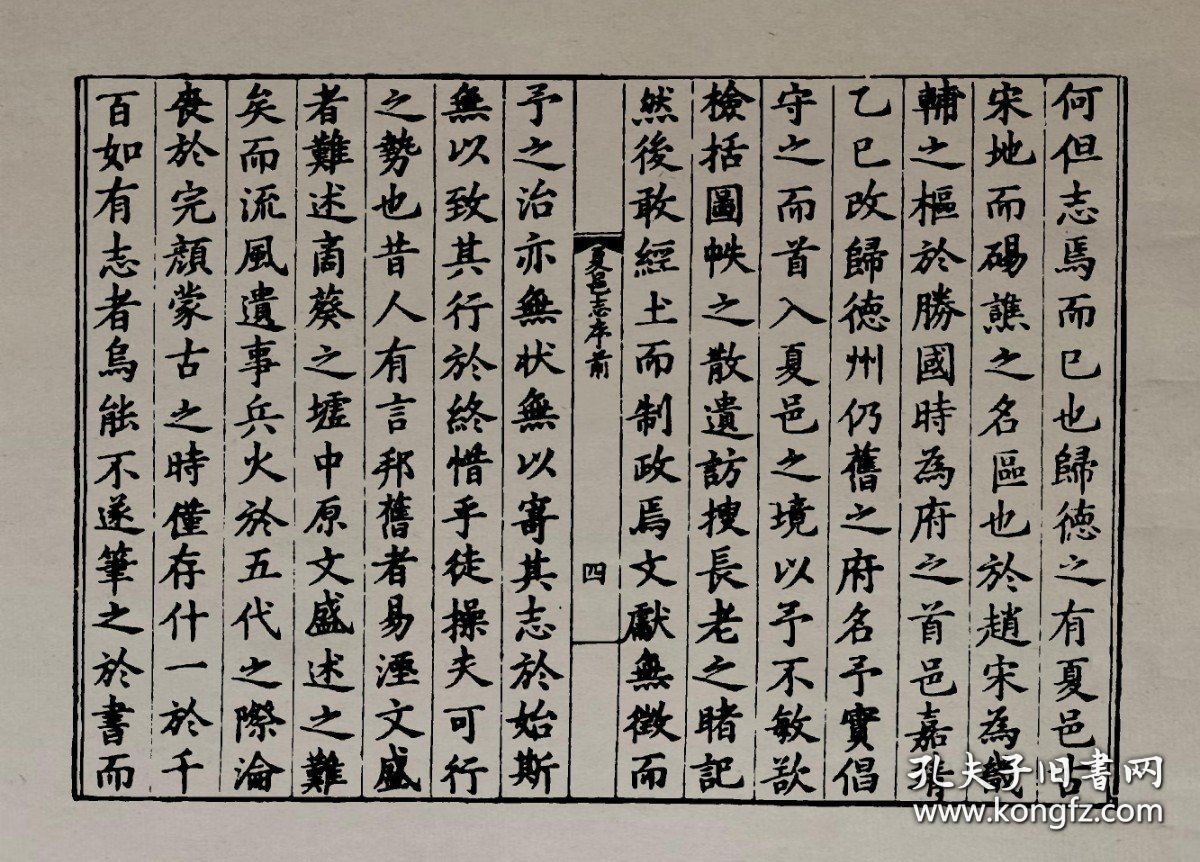 何但志焉而已也歸德之有夏邑古
宋地而碭譙之名區也於趙宋為畿
輔之樞於勝國時為府之首邑嘉靖
乙巳改歸德州仍舊之府名予實倡
守之而首入夏邑之境以予不敏欲
檢括圖帙之散遺訪搜長老之睹記
然後敢經土而制政焉文獻無徵而
夏邑志序前
四
予之治亦無狀無以寄其志於始斯
無以致其行於終惜乎徒操夫可行
之勢也昔人有言邦舊者易湮文盛
者難述商葵之墟中原文盛述之難
矣而流風遺事兵火於五代之際淪
喪於完顏蒙古之時僅存什一於千
百如有志者烏能不遂筆之於書而
孔夫子旧書网
www.kongfz.com